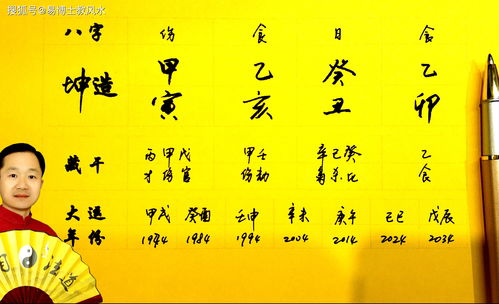 搜狐号@易博士救风水
八字 伤 食 日 食
坤造 甲寅 乙亥 癸丑 乙卯
藏干 丙甲戊 甲壬 辛己癸 乙
才伤官 伤劫 枭杀比 食
大运 甲戌 癸酉 壬申 辛未 庚午 己巳 戊辰
年份 1984 1994 2004 2014 2024 2034
道